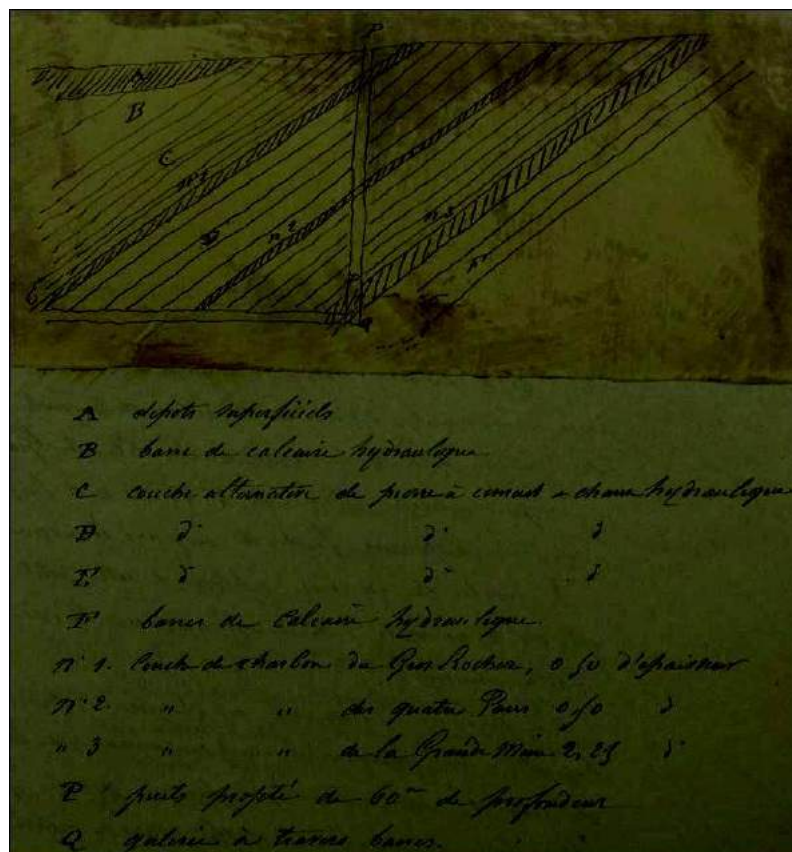 P
A
B
C
n°1
D
n 2
n 3
A depots superficiels
B bancs de calcaire hydraulique
C couche alternative de pierre à ciment & chaux hydraulique
D d° d° d
E d° d° d
F bancs de calcaire hydraulique.
n° 1. Couche de charbon du Gros Rocher, 0,50 d'épaisseur
n° 2. " " des quatre Pans 0,50 d
" 3 " " de la Grande Mine 2,25 d°
P puits projeté de 60m de profondeur
Q galerie à travers bancs.